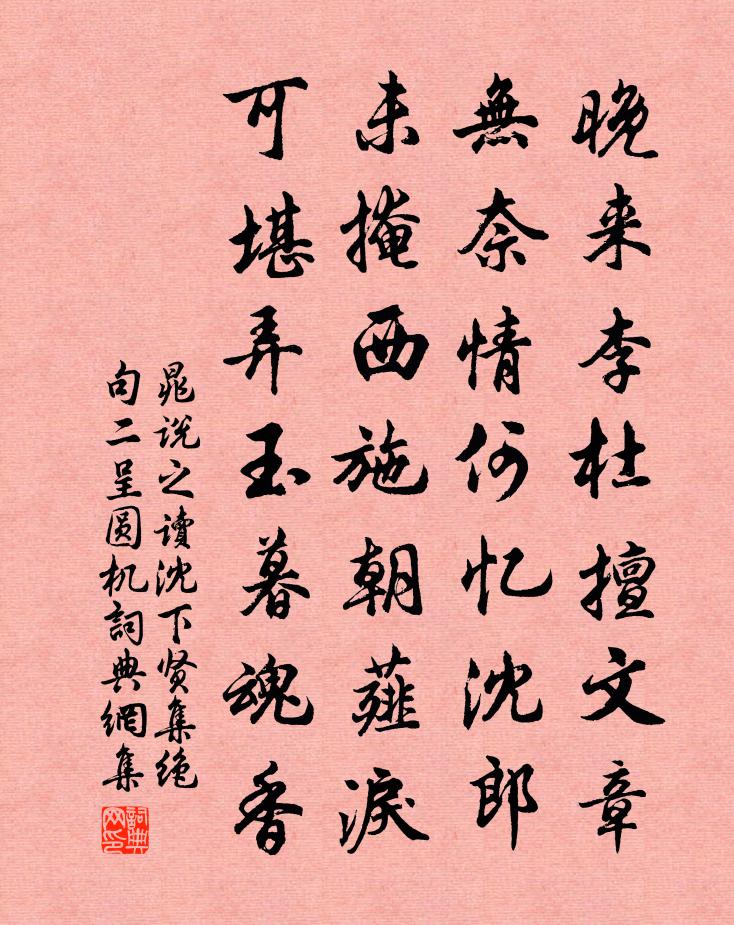 晚来李杜擅文章
無奈情何忆沈郎
未掩西施朝薤淚
可堪弄玉暮魂香
晁说之读沈下贤集绝
句二呈圆机詞典網集
詞典
网印